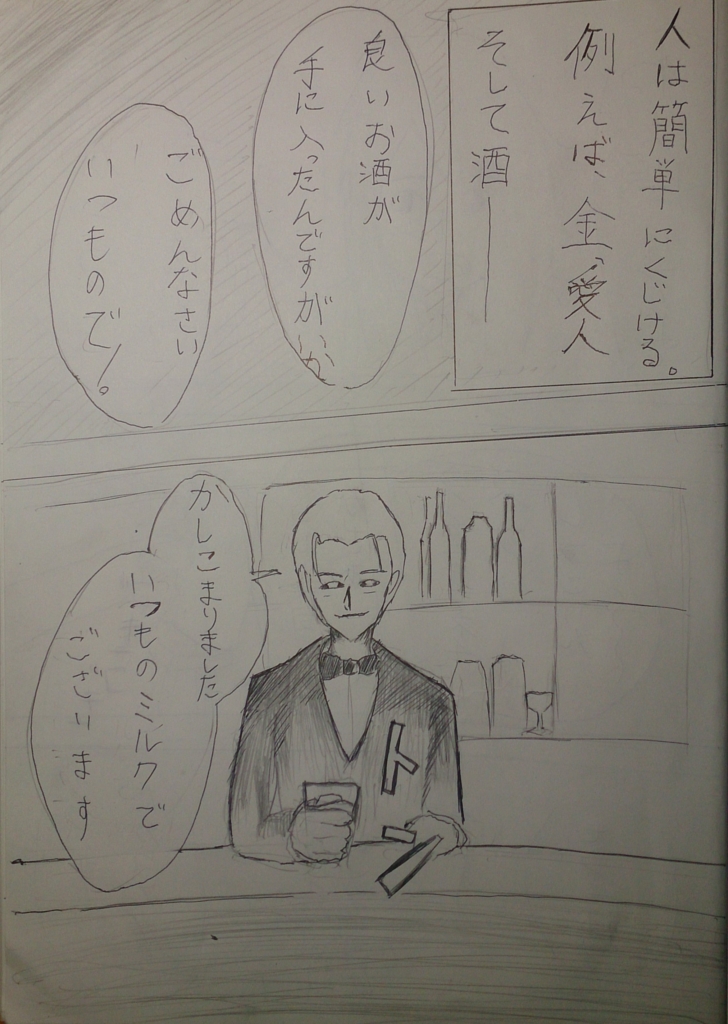 人は簡単にくじける。
例えば、金、愛人
そして酒――
良いお酒が
手に入ったんですが、
ごめんなさい
いつもので!。
かしこまりました
いつものミルクで
ございます
トン